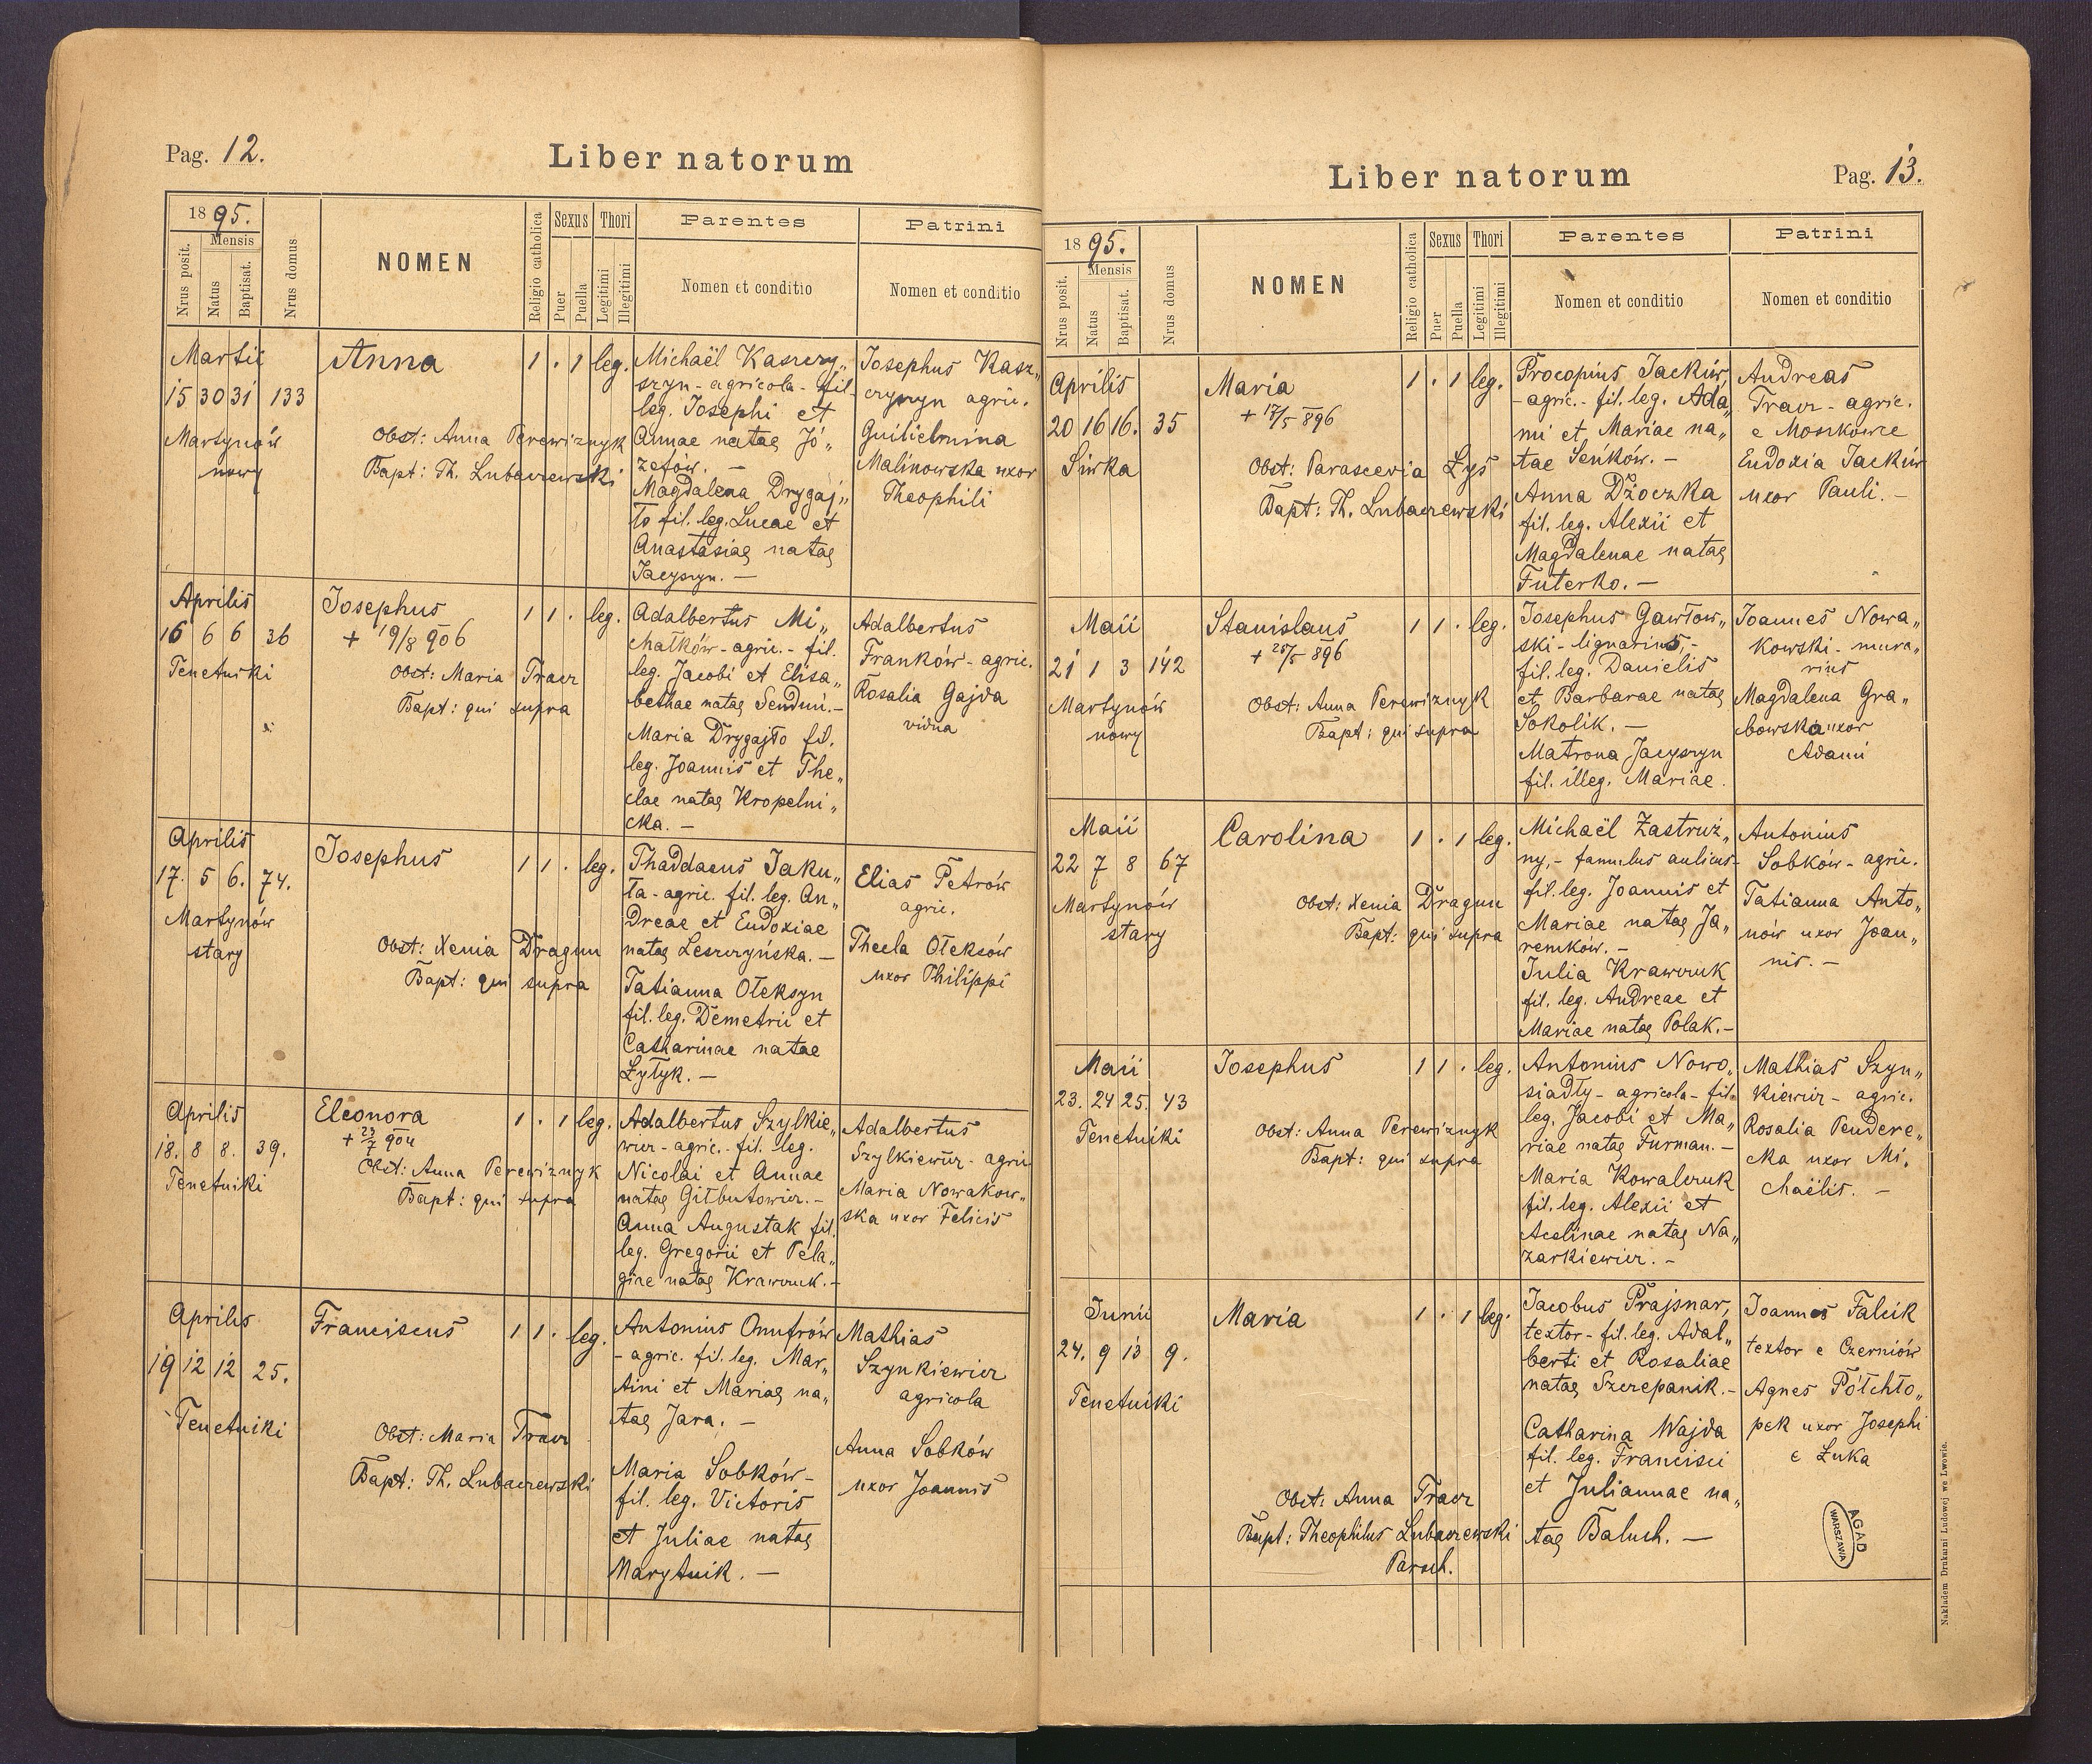 Pag. 12.
Liber natorum
1895.
Nrus posit.
Mensis
Natus
Baptisat.
Nrus domus
NOMEN
Religio catholica
Sexus
Puer
Puella
Thori
Legitimi
Illegitimi
Parentes
Nomen et conditio
Patrini
Nomen et conditio
Martii
15 30 31 133
Martynów
nowy
Anna
Obst: Anna Perewiznyk
Bapt: Th. Lubaczewski
1 . 1 leg.
Michaël Kaszczy„
szyn - agricola - fil.
leg. Josephi et
Annae natae Jó„
zefów. —
Magdalena Drygaj„
ło fil. leg. Lucae et
Anastasiae natae
Jacyszyn. —
Josephus Kasz„
czyszyn agric.
Guilielmina
Malinowska uxor
Theophili
Aprilis
16 6 6 36
Tenetniki
Josephus
+ 19/8 906
Obst: Maria Tracz
Bapt: qui supra
1 1 . leg.
Adalbertus Mi„
chałków - agric. - fil.
leg. Jacobi et Elisa„
bethae natae Senduń. —
Maria Drygajło fil.
leg. Joannis et The„
clae natae Kropelni„
cka. —
Adalbertus
Franków - agric.
Rosalia Gajda
vidua
Aprilis
17. 5 6. 74.
Martynów
stary
Josephus
Obst: Xenia Dragun
Bapt: qui supra
1 1 . leg.
Thaddaeus Jaku„
ta - agric. fil. leg. An„
dreae et Eudoxiae
natae Leszczyńska. —
Tatianna Ołeksyn
fil. leg. Demetrii et
Catharinae natae
Łytyk. —
Elias Petrów
agric.
Thecla Ołeksów
uxor Philippi
Aprilis
18. 8 8. 39.
Tenetniki
Eleonora
+ 23/7 904
Obst: Anna Perewiznyk
Bapt: qui supra
1 . 1 leg.
Adalbertus Szylkie„
wicz - agric. - fil. leg.
Nicolai et Annae
natae Giłbutowicz. —
Anna Augustak fil.
leg. Gregorii et Pela„
giae natae Krawczuk. —
Adalbertus
Szylkiewicz - agric.
Maria Nowakow„
ska uxor Felicis
Aprilis
19 12 12 25.
Tenetniki
Franciscus
Obst: Maria Tracz
Bapt: Th. Lubaczewski
1 1 . leg.
Antonius Onufrów
- agric. fil. leg. Mar„
tini et Mariae na„
tae Jara. —
Maria Sobków -
fil. leg. Victoris
et Juliae natae
Marytnik. —
Mathias
Szynkiewicz
agricola
Anna Sobków
uxor Joannis
Liber natorum
Pag. 13.
1895.
Nrus posit.
Mensis
Natus
Baptisat.
Nrus domus
NOMEN
Religio catholica
Sexus
Puer
Puella
Thori
Legitimi
Illegitimi
Parentes
Nomen et conditio
Patrini
Nomen et conditio
Aprilis
20 16 16. 35
Siwka
Maria
+ 17/5 896
Obst: Parascevia Łyś
Bapt: Th. Lubaczewski
1 . 1 leg.
Procopius Jackiw,
- agric. - fil. leg. Ada„
mi et Mariae na„
tae Seńków. —
Anna Dżoczka
fil. leg. Alexii et
Magdalenae natae
Futerko. —
Andreas
Tracz - agric.
e Moszkowce
Eudoxia Jackiw
uxor Pauli. —
Maii
21 1 3 142
Martynów
nowy
Stanislaus
+ 25/5 896
Obst: Anna Perewiznyk
Bapt: qui supra
1 1 . leg.
Josephus Gawłow„
ski - lignarius, -
fil. leg. Danielis
et Barbarae natae
Sokolik. —
Matrona Jacyszyn
fil. illeg. Mariae.
Joannes Nowa„
kowski - mura„
rius
Magdalena Gra„
bowska uxor
Adami
Maii
22 7 8 67
Martynów
stary
Carolina
Obst: Xenia Dragun
Bapt: qui supra
1 . 1 leg.
Michaël Zastruż„
ny, - famulus aulicus -
fil. leg. Joannis et
Mariae natae Ja„
remków. —
Julia Krawczuk
fil. leg. Andreae et
Mariae natae Polak. —
Antonius
Sobków - agric.
Tatianna Anto„
nów uxor Joan„
nis. —
Maii
23. 24 25. 43
Tenetniki
Josephus
Obst: Anna Perewiznyk
Bapt: qui supra
1 1 . leg.
Antonius Nowo„
siadły - agricola - fil.
leg. Jacobi et Ma„
riae natae Furman. —
Maria Kowalczuk
fil. leg. Alexii et
Acelinae natae Na„
zarkiewicz. —
Mathias Szyn„
kiewicz - agric.
Rosalia Pendere„
cka uxor Mi„
chaëlis. —
Junii
24. 9 13 9.
Tenetniki
Maria
Obst: Anna Tracz
Bapt: Theophilus Lubaczewski
Paroch.
1 . 1 leg.
Jacobus Prajsnar,
textor - fil. leg. Adal„
berti et Rosaliae
natae Szczepanik. —
Catharina Wajda
fil. leg. Francisci
et Juliannae na„
tae Baluch. —
Joannes Falcik
textor e Czerniów
Agnes Półchło„
pek uxor Josephi
e Łuka
AGAD
WARSZAWA
Nakładem Drukarni Ludowej we Lwowie.